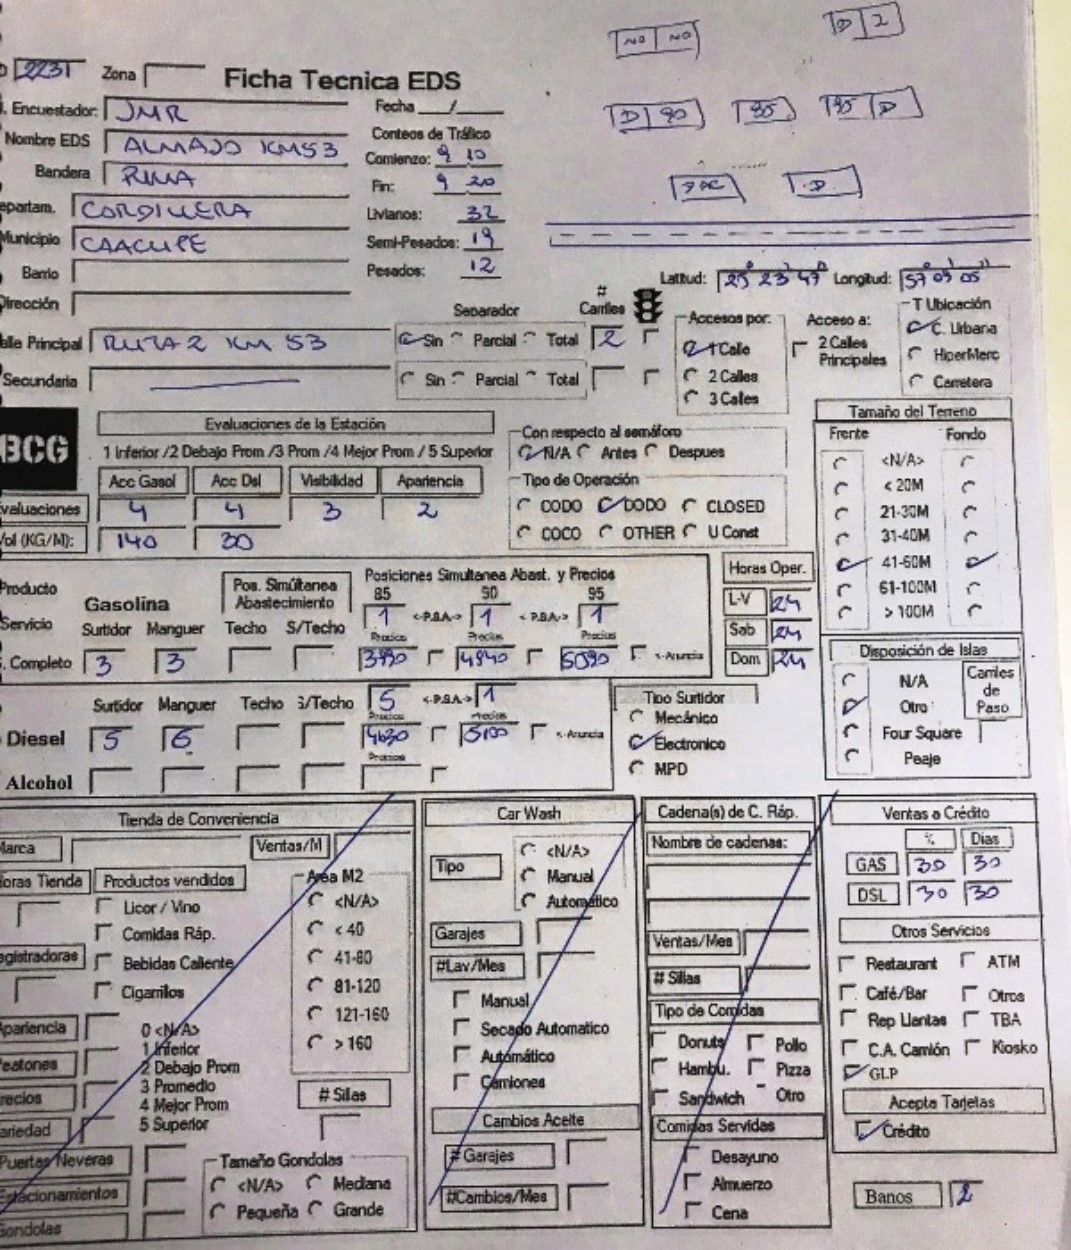 NO NO
D 2
2231 Zona
Ficha Tecnica EDS
D 90 95 95 D
Encuestador: JMR
Fecha __/__
Nombre EDS
Conteos de Tráfico
Comienzo: 9 10
Bandera
Fin: 9 20
epartam. CORDILLERA
Livianos: 32
Municipio CAACUPE
Semi-Pesados: 19
Barrio
Pesados: 12
Dirección
Latitud: 25 23 47 Longitud: 57 09 05
alle Principal RUTA 2 KM 53
Separador
# Carriles
Sin Parcial Total 2
Secundaria
Sin Parcial Total
Accesos por:
1 Calle
2 Calles
3 Calles
Acceso a:
2 Calles
Principales
T Ubicación
C. Urbana
HiperMerc
Carretera
BCG
Evaluaciones de la Estación
1 Inferior /2 Debajo Prom /3 Prom /4 Mejor Prom / 5 Superior
Acc Gasol Acc Dsl Visibilidad Apariencia
valuaciones 4 4 3 2
Vol (KG/M): 140 30
Con respecto al semáforo
N/A Antes Despues
Tipo de Operación
CODO DODO CLOSED
COCO OTHER U Const
Tamaño del Terreno
Frente Fondo
<N/A>
< 20M
21-30M
31-40M
41-60M
61-100M
> 100M
Producto
Servicio
Gasolina
Pos. Simúltanea
Abastecimiento
Posiciones Simultanea Abast. y Precios
85 90 95
1 <-P.S.A.-> 1 <-P.S.A.-> 1
Surtidor Manguer Techo S/Techo
Precios Precios Precios
. Completo 3 3 3990 4840 5090 <-Anuncia
Horas Oper.
L-V 24
Sab 24
Dom 24
Surtidor Manguer Techo S/Techo 5 <-P.S.A.-> 1
Precios Precios
Diesel 5 6 4630 5100 <-Anuncia
Precios
Alcohol
Tipo Surtidor
Mecánico
Electronico
MPD
Disposición de Islas
N/A
Otro
Four Square
Peaje
Carriles
de
Paso
Tienda de Conveniencia
Marca Ventas/M
Horas Tienda Productos vendidos
Licor / Vino
Comidas Ráp.
Bebidas Caliente
Cigarrilos
egistradoras
Area M2
<N/A>
< 40
41-80
81-120
121-160
> 160
Apariencia
Peatones
Precios
ariedad
Puertas Neveras
Estacionamientos
Gondolas
0 <N/A>
1 Inferior
2 Debajo Prom
3 Promedio
4 Mejor Prom
5 Superior
# Sillas
Tamaño Gondolas
<N/A> Mediana
Pequeña Grande
Car Wash
Tipo
<N/A>
Manual
Automático
Garajes
#Lav/Mes
Manual
Secado Automatico
Automático
Camiones
Cambios Aceite
# Garajes
#Cambios/Mes
Cadena(s) de C. Ráp.
Nombre de cadenas:
Ventas/Mes
# Sillas
Tipo de Comidas
Donuts Pollo
Hambu. Pizza
Sandwich Otro
Comidas Servidas
Desayuno
Almuerzo
Cena
Ventas a Crédito
% Dias
GAS 30 30
DSL 30 30
Otros Servicios
Restaurant ATM
Café/Bar Otros
Rep Llantas TBA
C.A. Camión Kiosko
GLP
Acepta Tarjetas
Crédito
Banos 2